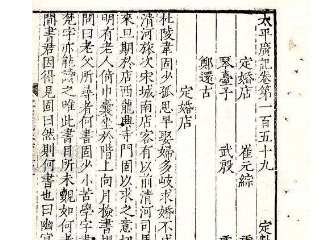 太平廣記卷第一百五十九
定婚店 崔元綜
琴臺子 武殷
鄭還古
定婚店
杜陵韋固少孤思早娶婦多岐求婚不
清河旅次宋城南店客有以前清河司馬
來旦期於店西龍興寺門固以求之意切
明有老人倚巾囊坐於階上向月檢書
問曰老父所尋者何書固少小苦學字書
梵字亦能讀之唯此書目所未覿如何
間書君因得見固曰然則何書也曰幽